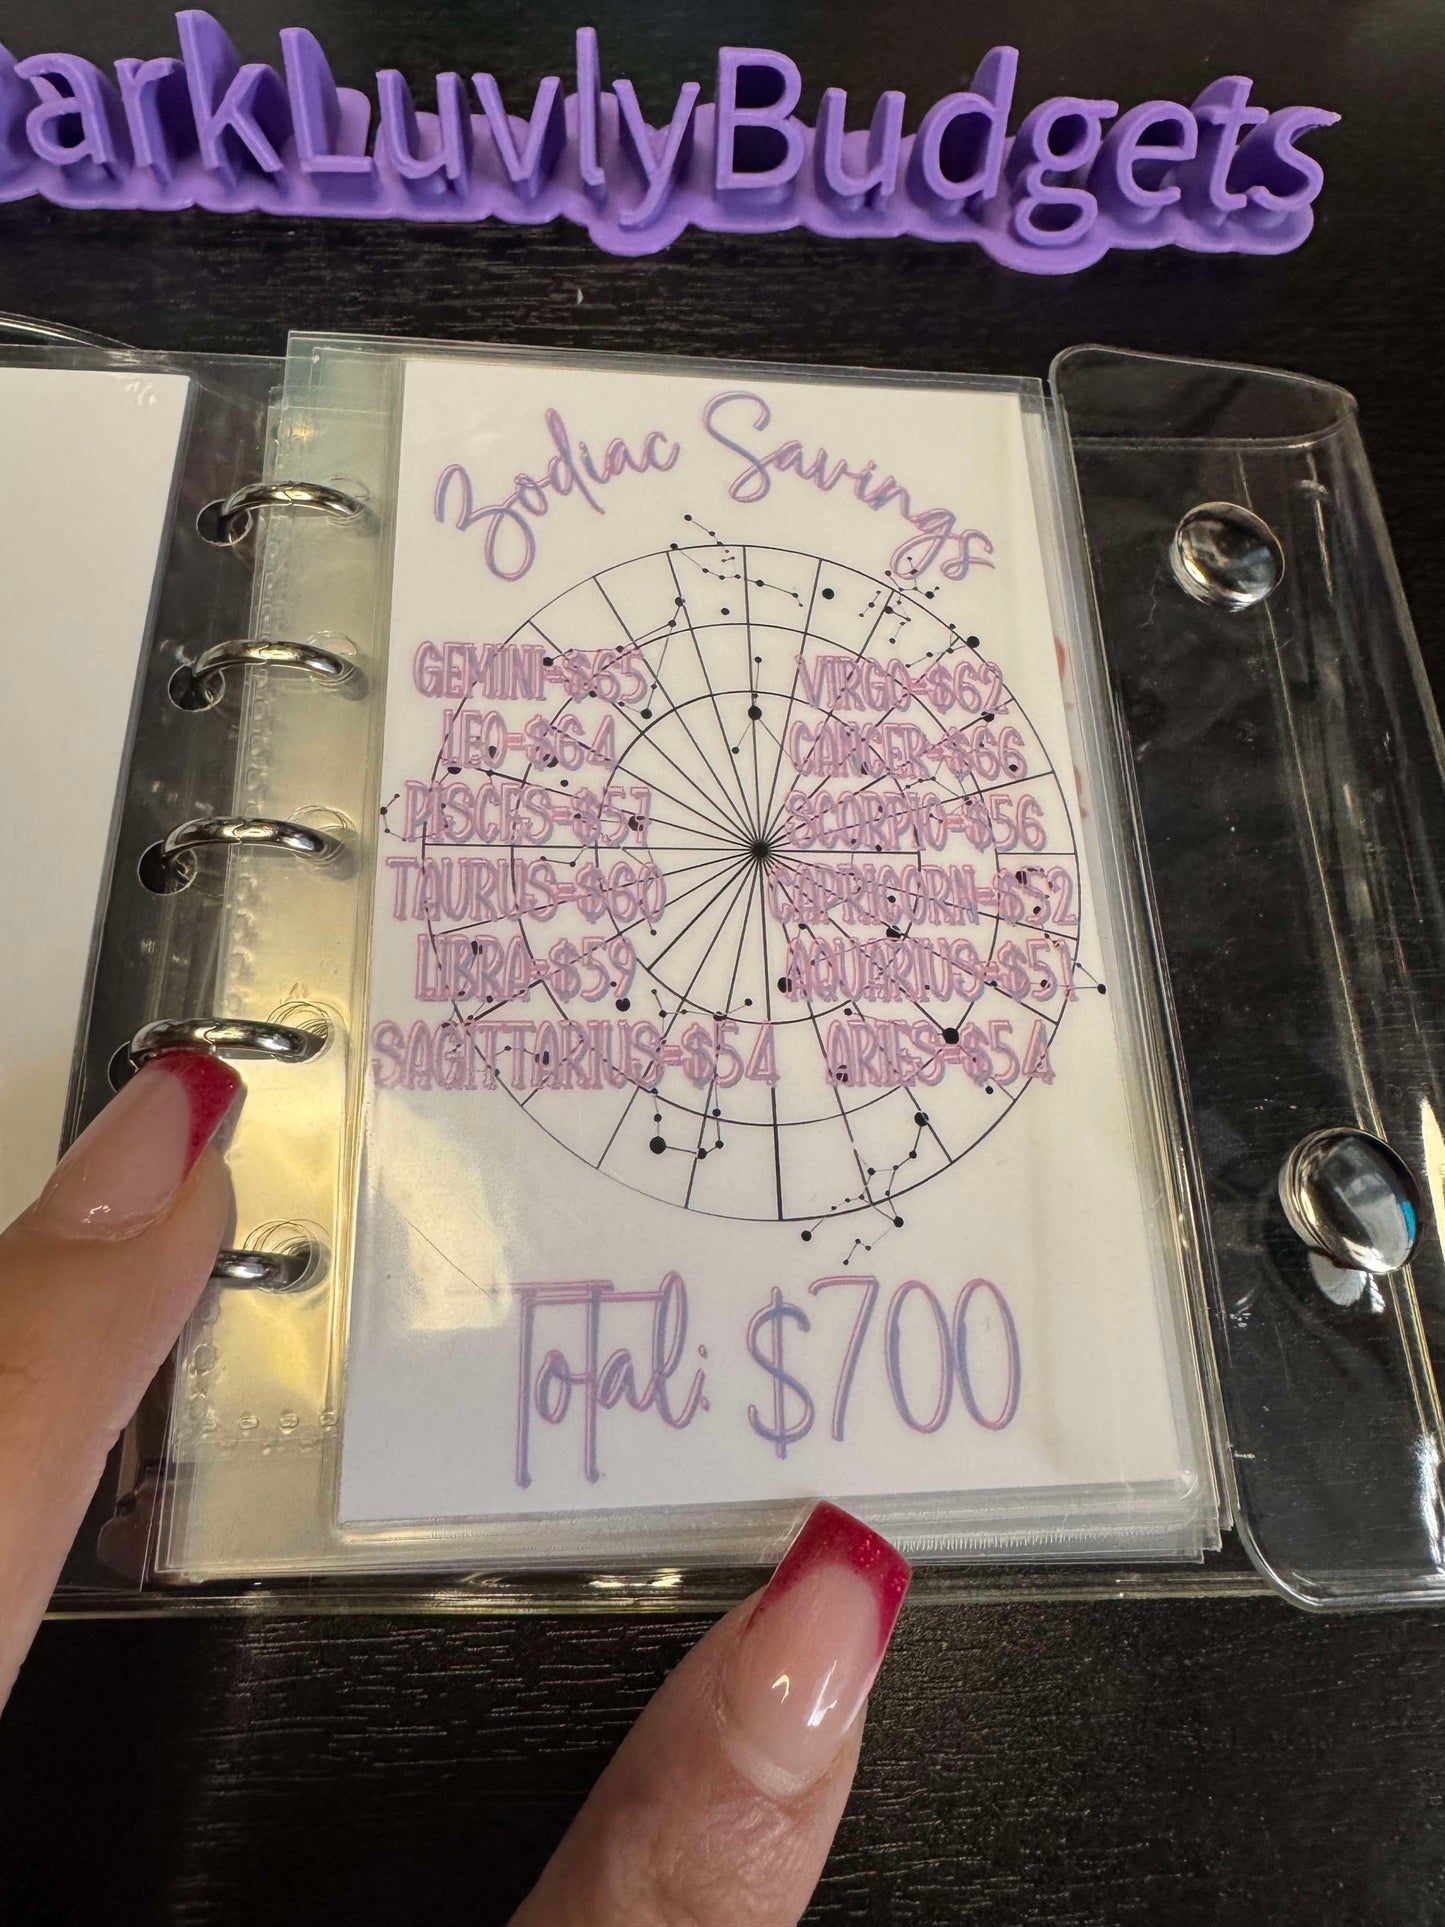 arkLuvlyBudgets
Zodiac Savings
GEMINI=$65
LEO=$64
PISCES=$57
TAURUS=$60
LIBRA=$59
SAGITTARIUS=$54
VIRGO=$62
CANCER=$66
SCORPIO=$56
CAPRICORN=$52
AQUARIUS=$51
ARIES=$54
Total: $700